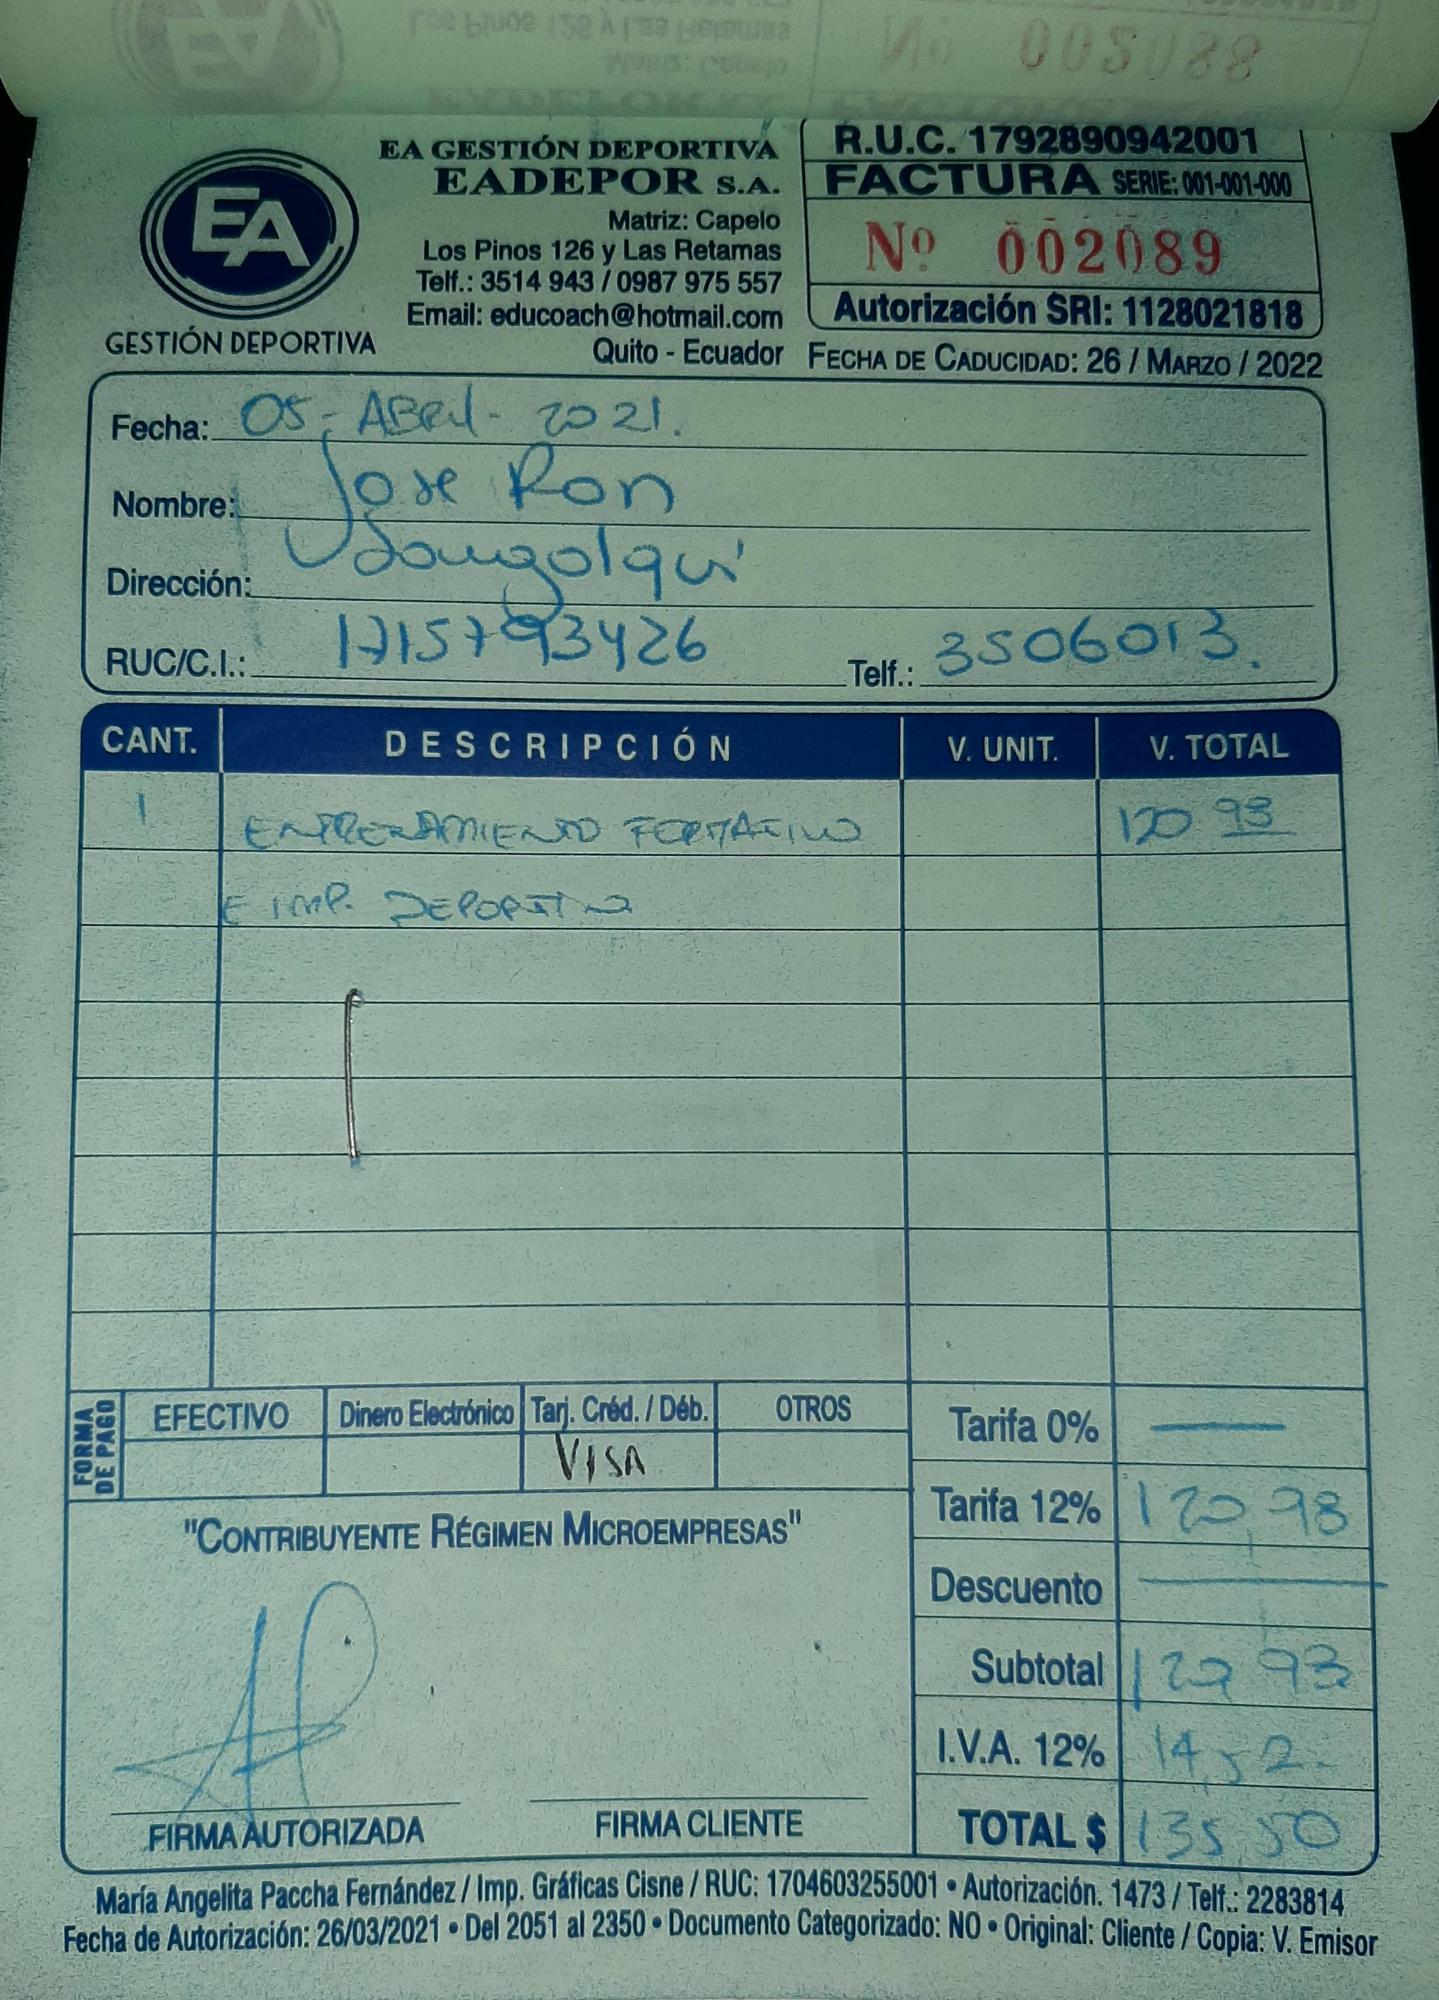 Los Pinos 126 y Las Retamas
Matriz: Capelo
No 002088
EA
GESTIÓN DEPORTIVA
EA GESTIÓN DEPORTIVA
EADEPOR S.A.
Matriz: Capelo
Los Pinos 126 y Las Retamas
Telf.: 3514 943 / 0987 975 557
Email: educoach@hotmail.com
Quito - Ecuador
R.U.C. 1792890942001
FACTURA SERIE: 001-001-000
Nº 002089
Autorización SRI: 1128021818
FECHA DE CADUCIDAD: 26 / MARZO / 2022
Fecha: 05 - ABRIL - 2021.
Nombre: Jose Ron
Dirección: Sangolqui
RUC/C.I.: 1715793426 Telf.: 3506013.
CANT. DESCRIPCIÓN V. UNIT. V. TOTAL
1 ENTRENAMIENTO FORMATIVO 120 98
E IMP. DEPORTIVO
FORMA DE PAGO
EFECTIVO Dinero Electrónico Tarj. Créd. / Déb. OTROS
VISA
Tarifa 0%
Tarifa 12% 120,98
Descuento
Subtotal 120 98
I.V.A. 12% 14,52
TOTAL $ 135,50
"CONTRIBUYENTE RÉGIMEN MICROEMPRESAS"
FIRMA AUTORIZADA FIRMA CLIENTE
María Angelita Paccha Fernández / Imp. Gráficas Cisne / RUC: 1704603255001 • Autorización. 1473 / Telf.: 2283814
Fecha de Autorización: 26/03/2021 • Del 2051 al 2350 • Documento Categorizado: NO • Original: Cliente / Copia: V. Emisor